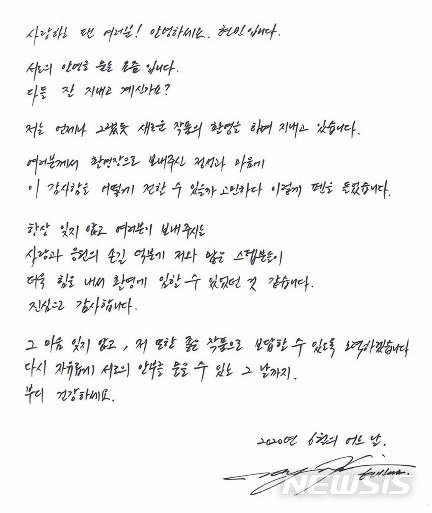 사랑하는 팬 여러분! 안녕하세요. 현빈입니다.
서로의 안녕을 묻는 요즘 입니다.
다들 잘 지내고 계신가요?
저는 언제나 그랬듯 새로운 작품의 촬영을 하며 지내고 있습니다.
여러분께서 촬영장으로 보내주신 정성과 마음에
이 감사함을 어떻게 전할 수 있을까 고민하다 이렇게 펜을 들었습니다.
항상 잊지 않고 여러분이 보내주시는
사랑과 응원의 손길 덕분에 저와 많은 스탭분들이
더욱 힘을 내서 촬영에 임할 수 있었던 것 같습니다.
진심으로 감사합니다.
그 마음 잊지 않고, 저 또한 좋은 작품으로 보답할 수 있도록 노력하겠습니다
다시 자유롭게 서로의 안부를 물을 수 있는 그 날까지.
부디 건강하세요.
2020년 6월의 어느 날.
NEWSIS